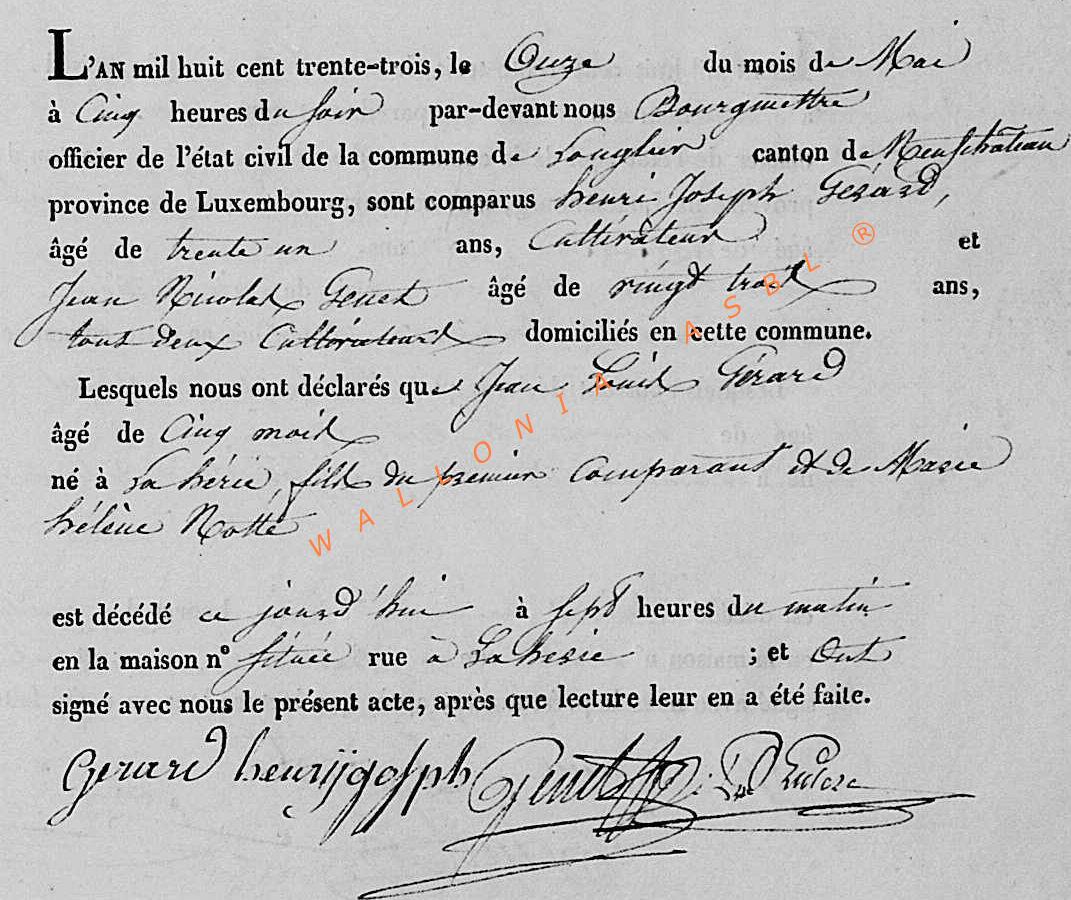 L'AN mil huit cent trente-trois, le Onze du mois de Mai
à Cinq heures du soir par-devant nous Bourgmettre
officier de l'état civil de la commune de Longlier canton de Neufchâteau
province de Luxembourg, sont comparus henri Joseph Gérard,
âgé de trente un ans, Cultivateur et
Jean Nicolas Genet âgé de vingt trois ans,
tous deux Cultivateurs domiciliés en cette commune.
Lesquels nous ont déclarés que Jean Louis Gérard
âgé de Cinq mois
né à La hérie, fils du premier Comparant et de Marie
hélène Notte
est décédé ce jourd'hui à sept heures du matin
en la maison n° située rue à Laherie ; et Ont
signé avec nous le présent acte, après que lecture leur en a été faite.
Gerard henry josph Genet
WALLONIA ASBL ®